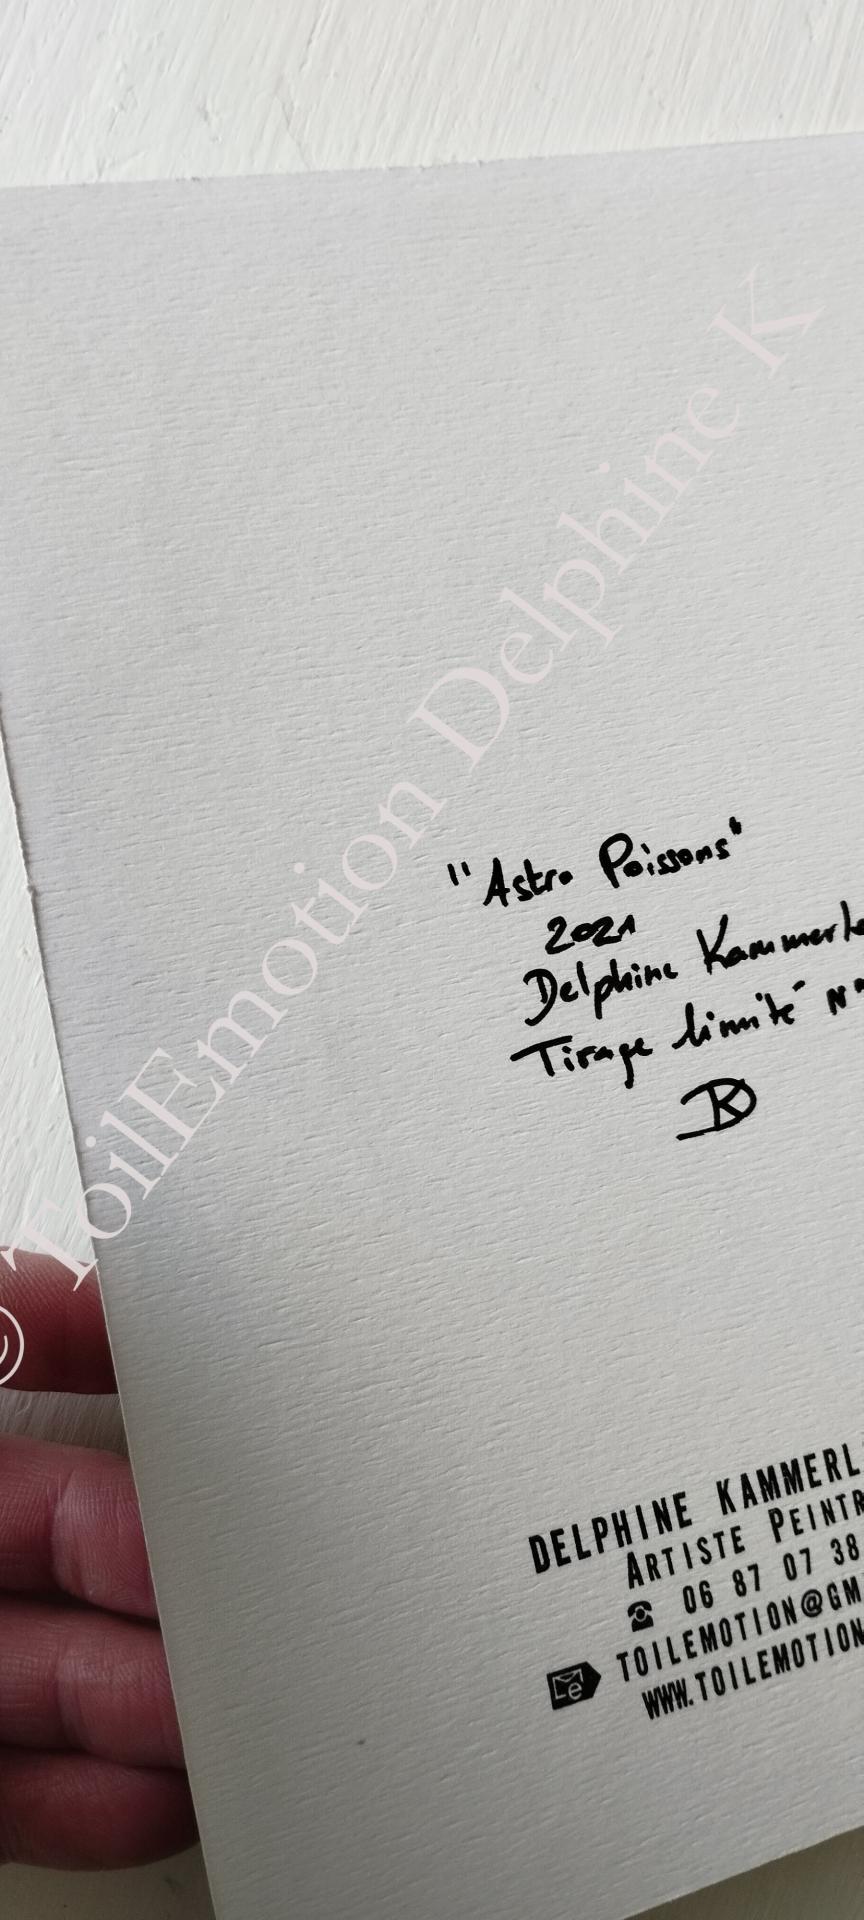 © ToilEmotion Delphine K
"Astro Poissons"
2021
Delphine
Tirage limité
DK
DELPHINE
ARTISTE
06 87 07 38
TOILEMOTION@GM
WWW.TOILEMOTION